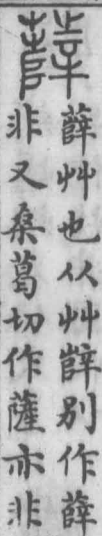 薛
薛艸也从艸辥別作薛
非又桑葛切作薩亦非